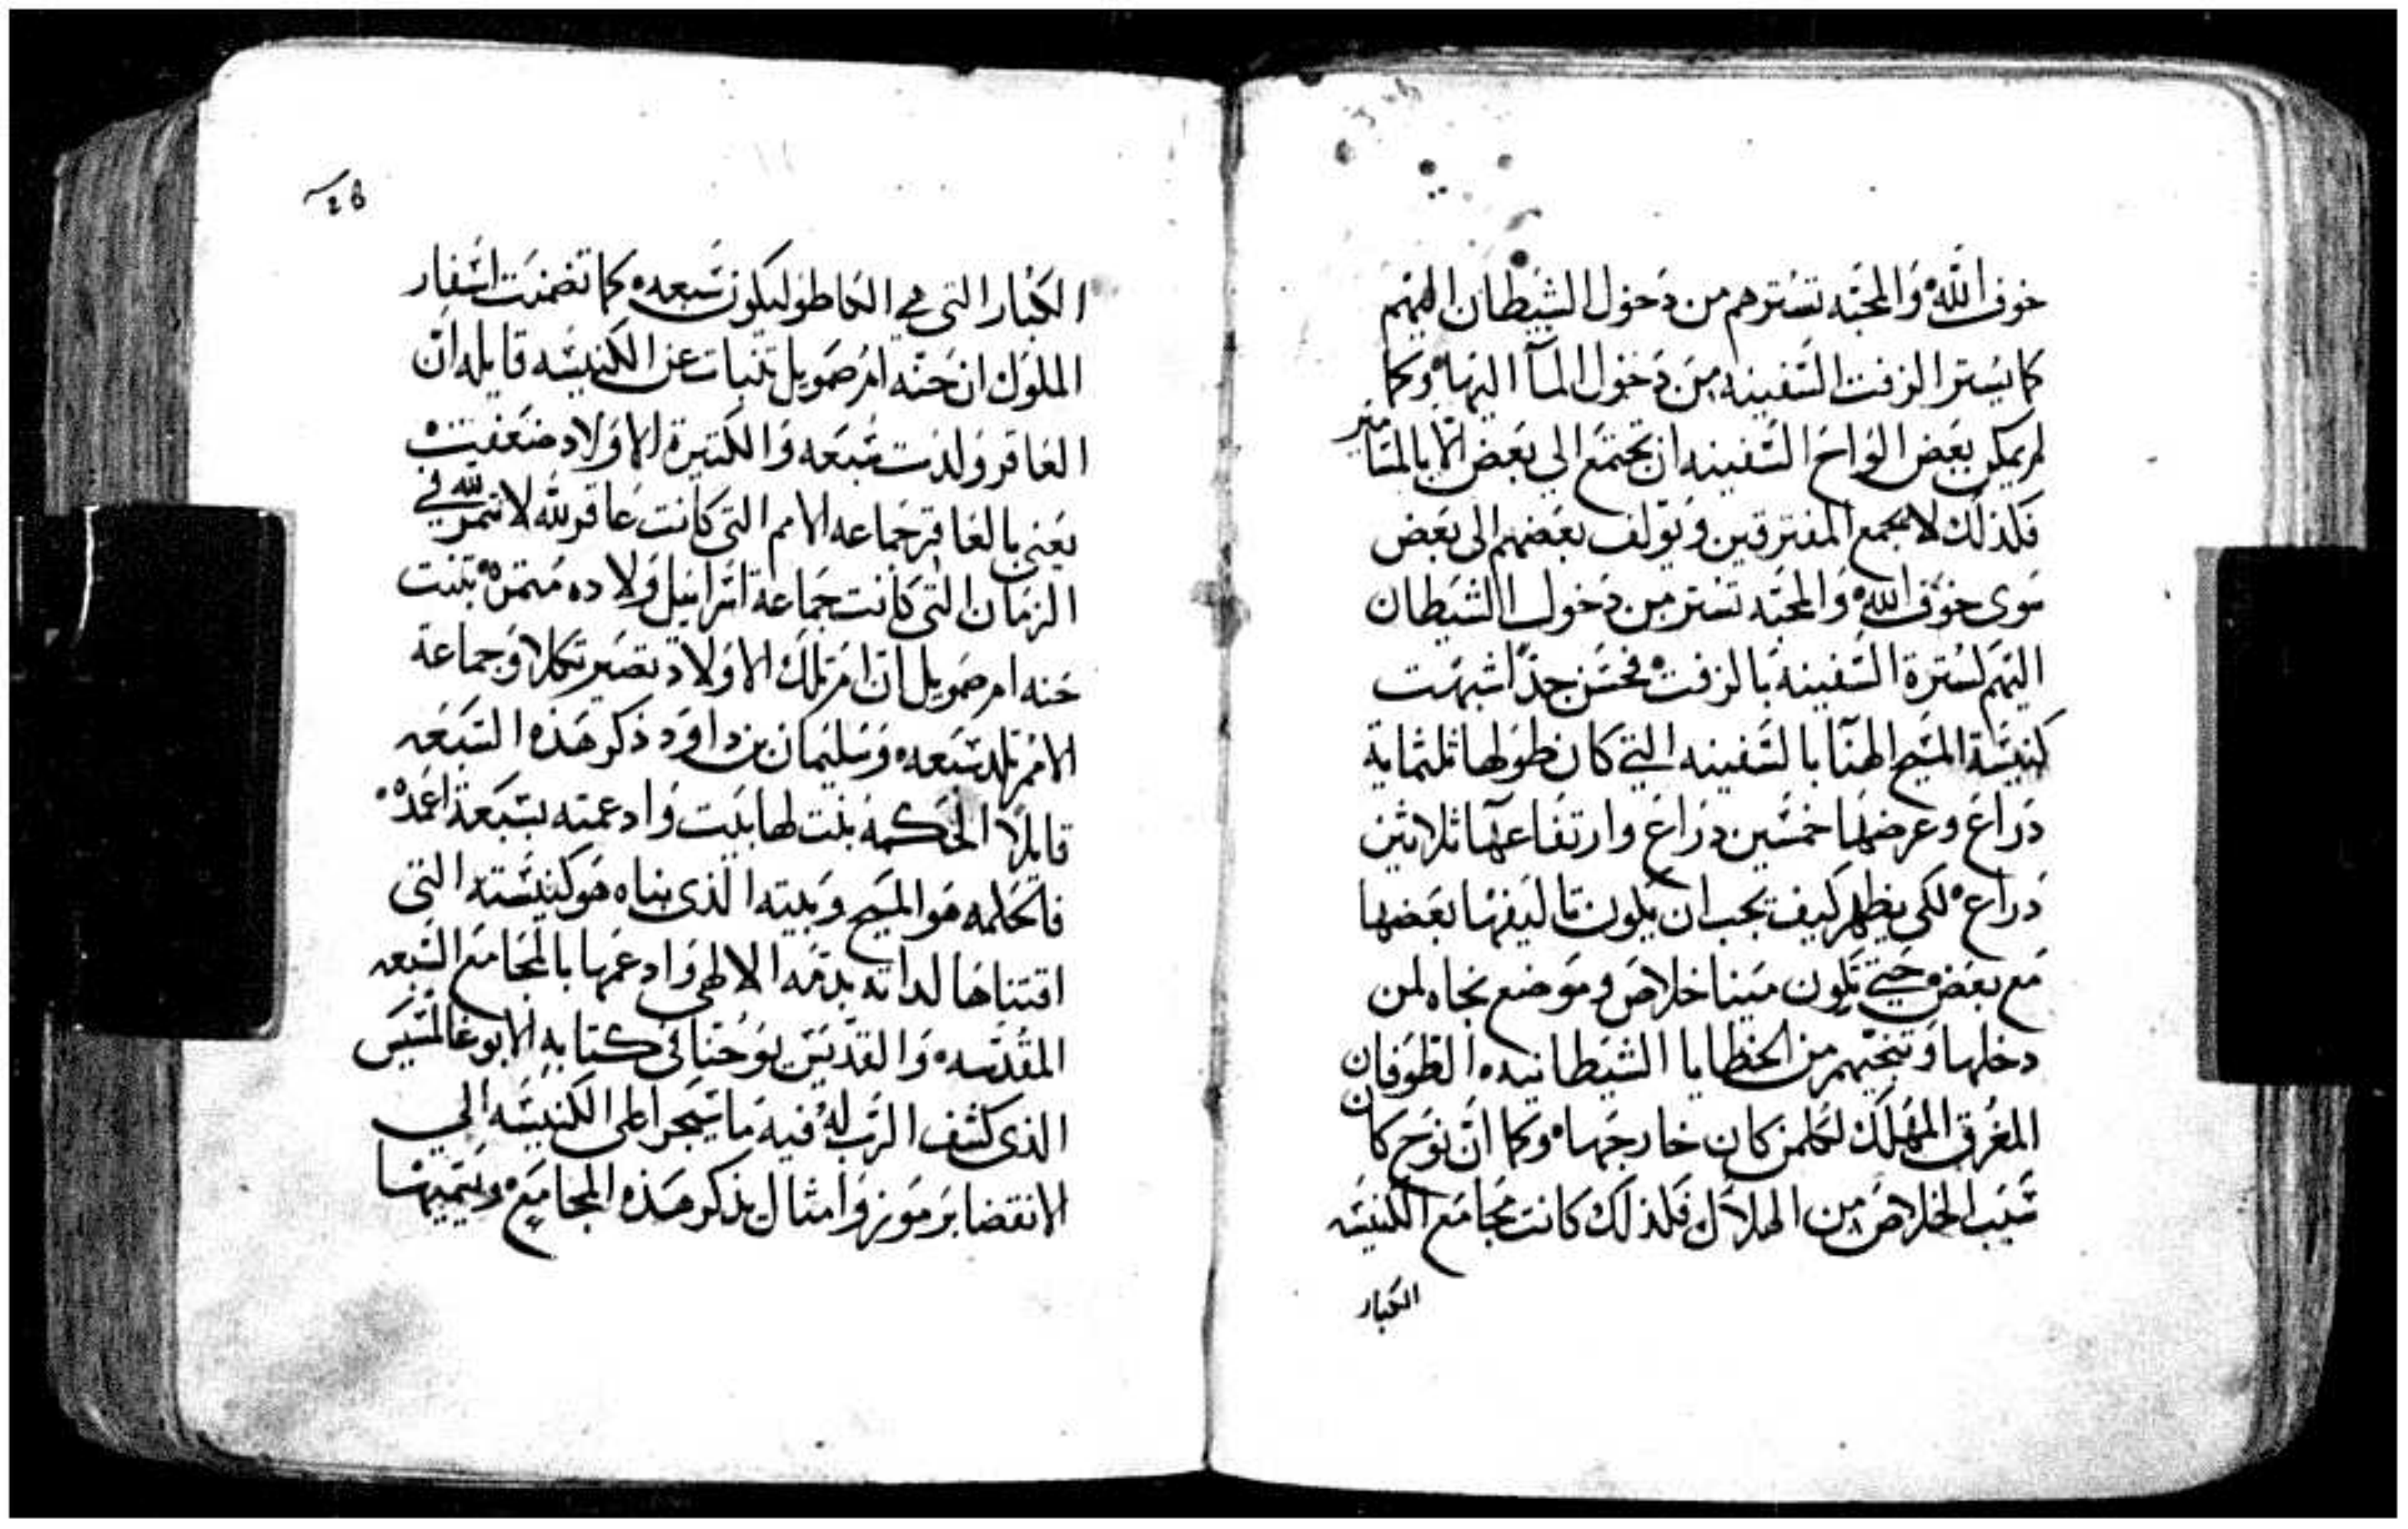 خوف الله والمحبه تسترهم من دخول الشيطان اليهم
كما يستر الزفت السفينه من دخول المآ اليها وكما
لم يمكن بعض الواح السفينه ان تجتمع الي بعض الا بالمسامير
فلذلك لا يجمع المفترقين ويولف بعضهم الى بعض
سوى خوف الله والمحبه تستر من دخول الشيطان
اليهم لسترة السفينه بالزفت فحسن جدًا شبهت
كنيسة المسيح الهنا بالسفينه التي كان طولها ثلثماية
دراع وعرضها خمسين دراع وارتفاعها ثلاثين
دراع لكى يظهر كيف يجب ان يكون تاليفها بعضها
مع بعض حتي تكون مينا خلاص وموضع نجاه لمن
دخلها وتنجيهم من الخطايا الشيطانيه الطوفان
المغرق المهلك لكلمن كان خارجها وكما ان نوح كان
سبب الخلاص من الهلاك فلذلك كانت مجامع الكنيسه
الكبار
الكبار التى هي سبعه كما تضمنت اسفار
الملوك ان حنه ام صمويل تنبات عن الكنيسه قايله ان
العاقر ولدت سبعه والكتيرة الاولاد ضعفت
يعني بالعاقر جماعه الامم التي كانت عاقر لله لا تثمر لله في
الزمان التي كانت جماعة اسرايل ولاده تنبت
حنه ام صمويل ان ام تلك الاولاد تصير تكلا وجماعة
الامم تلد سبعه وسليمان بن داوود ذكر هذه السبعه
قايلًا الحكمه بنت لها بيت وادعمته بسبعة اعمده
فالحكمه هو المسيح وبيته الذى بناه هو كنيسته التي
اقتناها لداته بدمه الالهي وادعمها بالمجامع السبعه
المقدسه والقديس يوحنا في كتابه الابوغالمسيس
الذى كشف الرب له فيه ما سيجرا على الكنيسه الي
الانقضا برموز وامثال يذكر هذه المجامع ويسميها